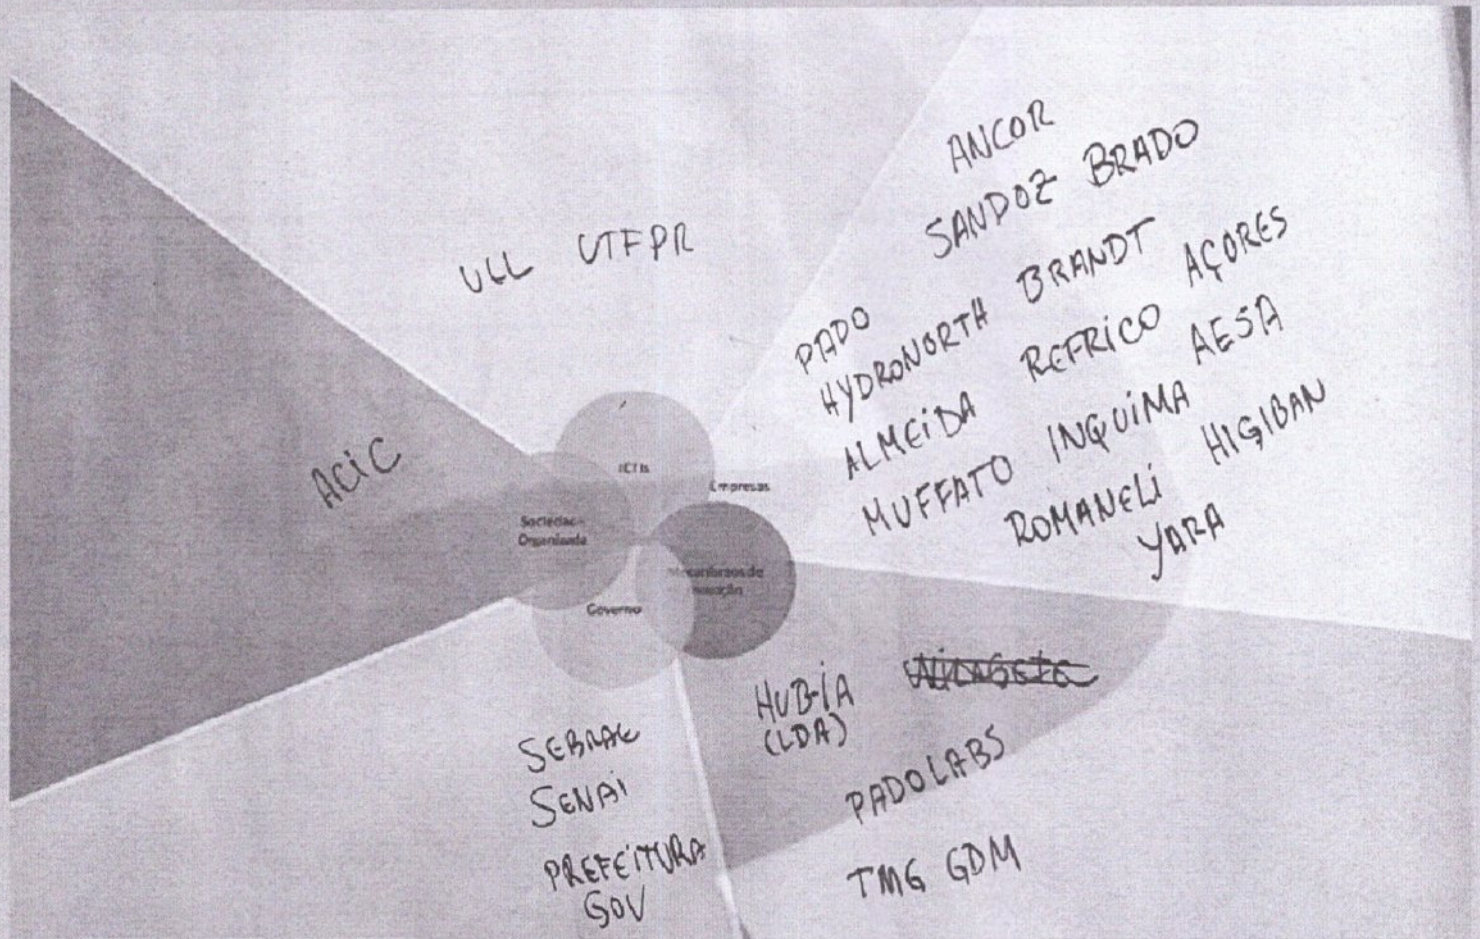 ANCOR
SANDOZ BRADO
ULL UTFPR
PADO
HYDRONORTH BRANDT AÇORES
ALMEIDA REFRICO AESA
MUFFATO INQUIMA HIGIBAN
ROMANELI
YARA
ACIC
ICTIs
Empresas
Sociedade
Organizada
Mecanismos de
inovação
Governo
HUB-IA
(LDA)
SEBRAE
SENAI
PREFEITURA
GOV
PADOLABS
TMG GDM